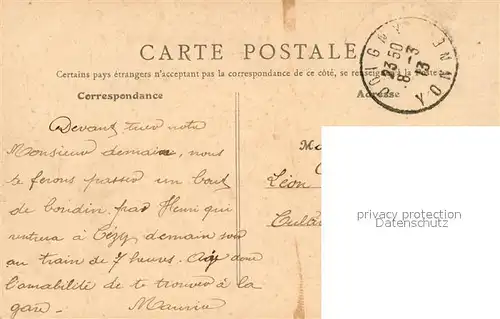 CARTE POSTALE
Certains pays étrangers n'acceptant pas la correspondance de ce côté, se renseigner à la Poste
JOIGNY YONNE
23 50
8 -3
13
Correspondance
Adresse
Devant tuer notre
Monsieur demain, nous
te ferons passer un bout
de boudin par Henri qui
rentrera à Cézy demain soir
au train de 7 heures. Aie donc
l'amabilité de te trouver à la
gare - Maurice
M
Léon
privacy protection
www.ansichtskarten-center.de